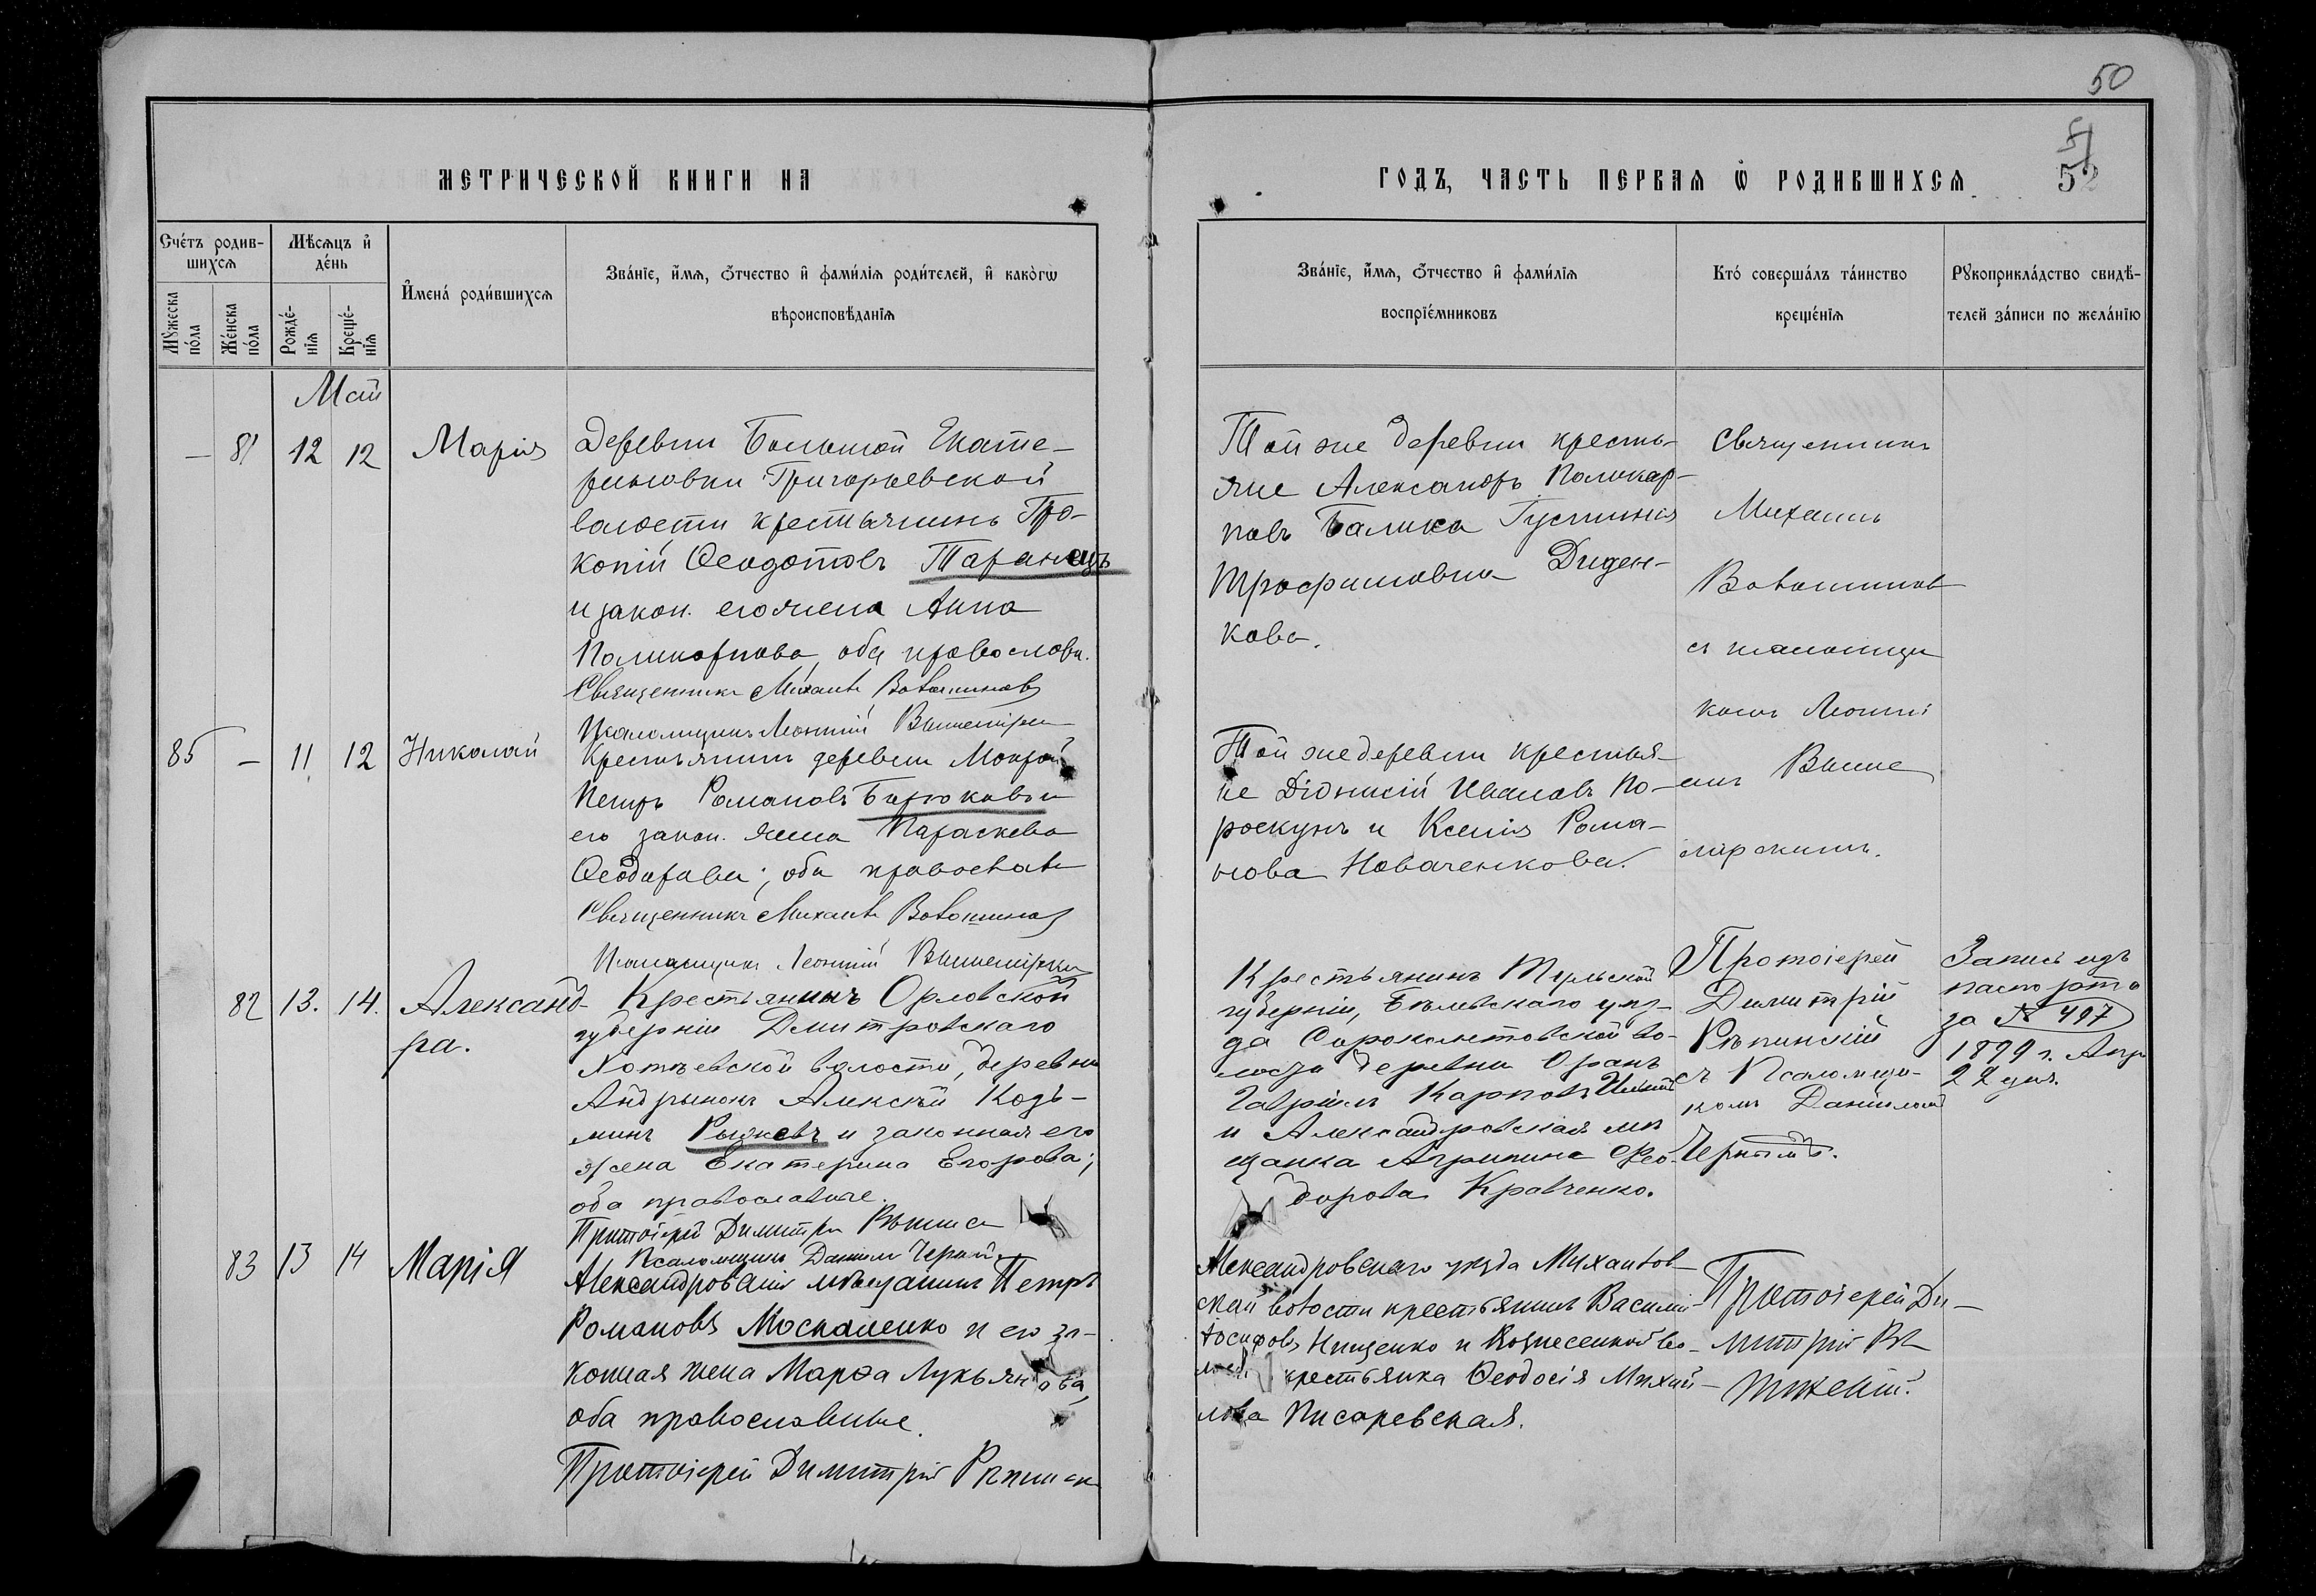 50
51
52
МЕТРИЧЕСКОЙ КНИГИ НА
ГОДЪ, ЧАСТЬ ПЕРВАЯ Ѡ РОДИВШИХСЯ
Счетъ родив-
шихся
Мужеска пола
Женска пола
Мѣсяцъ и
день
Рожде-
нія
Креще-
нія
Имена родившихся
Званіе, имя, отчество и фамилія родителей, и какогѡ
вѣроисповѣданія
Званіе, имя, отчество и фамилія
воспріемниковъ
Кто совершалъ таинство
крещенія
Рукоприкладство свидѣ-
телей записи по желанію
Май
— 81 12 12 Марія
Деревни Большой Екате-
риновки Григорьевской
волости крестьянинъ Про-
копій Ѳеодотовъ Таранецъ
и закон. его жена Анна
Поликарпова, оба православн.
Священникъ Михаилъ Волошиновъ
Псаломщикъ Леонтій Вышемірскій
Той же деревни кресть-
яне Александръ Поликар-
повъ Балика Густинія
Трофимовна Диден-
кова.
Священникъ
Михаилъ
Волошиновъ
съ псаломщи
комъ Леонті
емъ Выше
мірскимъ.
85 — 11 12 Николай
Крестьянинъ деревни Мокрой
Петръ Романовъ Бирюковъ и
его закон. жена Параскева
Ѳеодорова; оба православн
Священникъ Михаилъ Волошиновъ
Псаломщикъ Леонтій Вышемірскій
Той же деревни крестья-
не Діонисій Ивановъ По-
роскунъ и Ксенія Рома-
нова Новаченкова.
82 13. 14. Александ-
ра.
Крестьянинъ Орловской
губерніи Дмитровскаго
Хотѣевской волости, деревни
Андрынокъ Алексѣй Козь-
минъ Рыжевъ и законная его
жена Екатерина Егорова;
оба православные.
Протоіерей Димитрій Рѣпинск
Псаломщикъ Даніилъ Черный
Крестьянинъ Тульской
губерніи, Бѣлевскаго уѣз-
да Сороколѣтовской во-
лости деревни
Гавріилъ Карповъ
и Александровская мѣ
щанка Агрипина Ѳео-
дорова Кравченко.
Протоіерей
Димитрій
Рѣпинскій
съ Псаломщи-
комъ Даніиломъ
Чернымъ.
Запись изъ
паспорта
за № 497
1899 г. Апр
22 дня.
83 13 14 Марія
Александровскій мѣщанинъ Петръ
Романовъ Москаленко и его за-
конная жена Марѳа Лукьянова,
оба православные.
Протоіерей Димитрій Рѣпинск
Александровскаго уѣзда Михайлов-
ской волости крестьянинъ Василій
Іосифовъ Нищенко и Вознесенской во-
лост. крестьянка Ѳеодосія Михай-
лова Писаревская.
Протоіерей Ди-
митрій Рѣ-
пинскій.